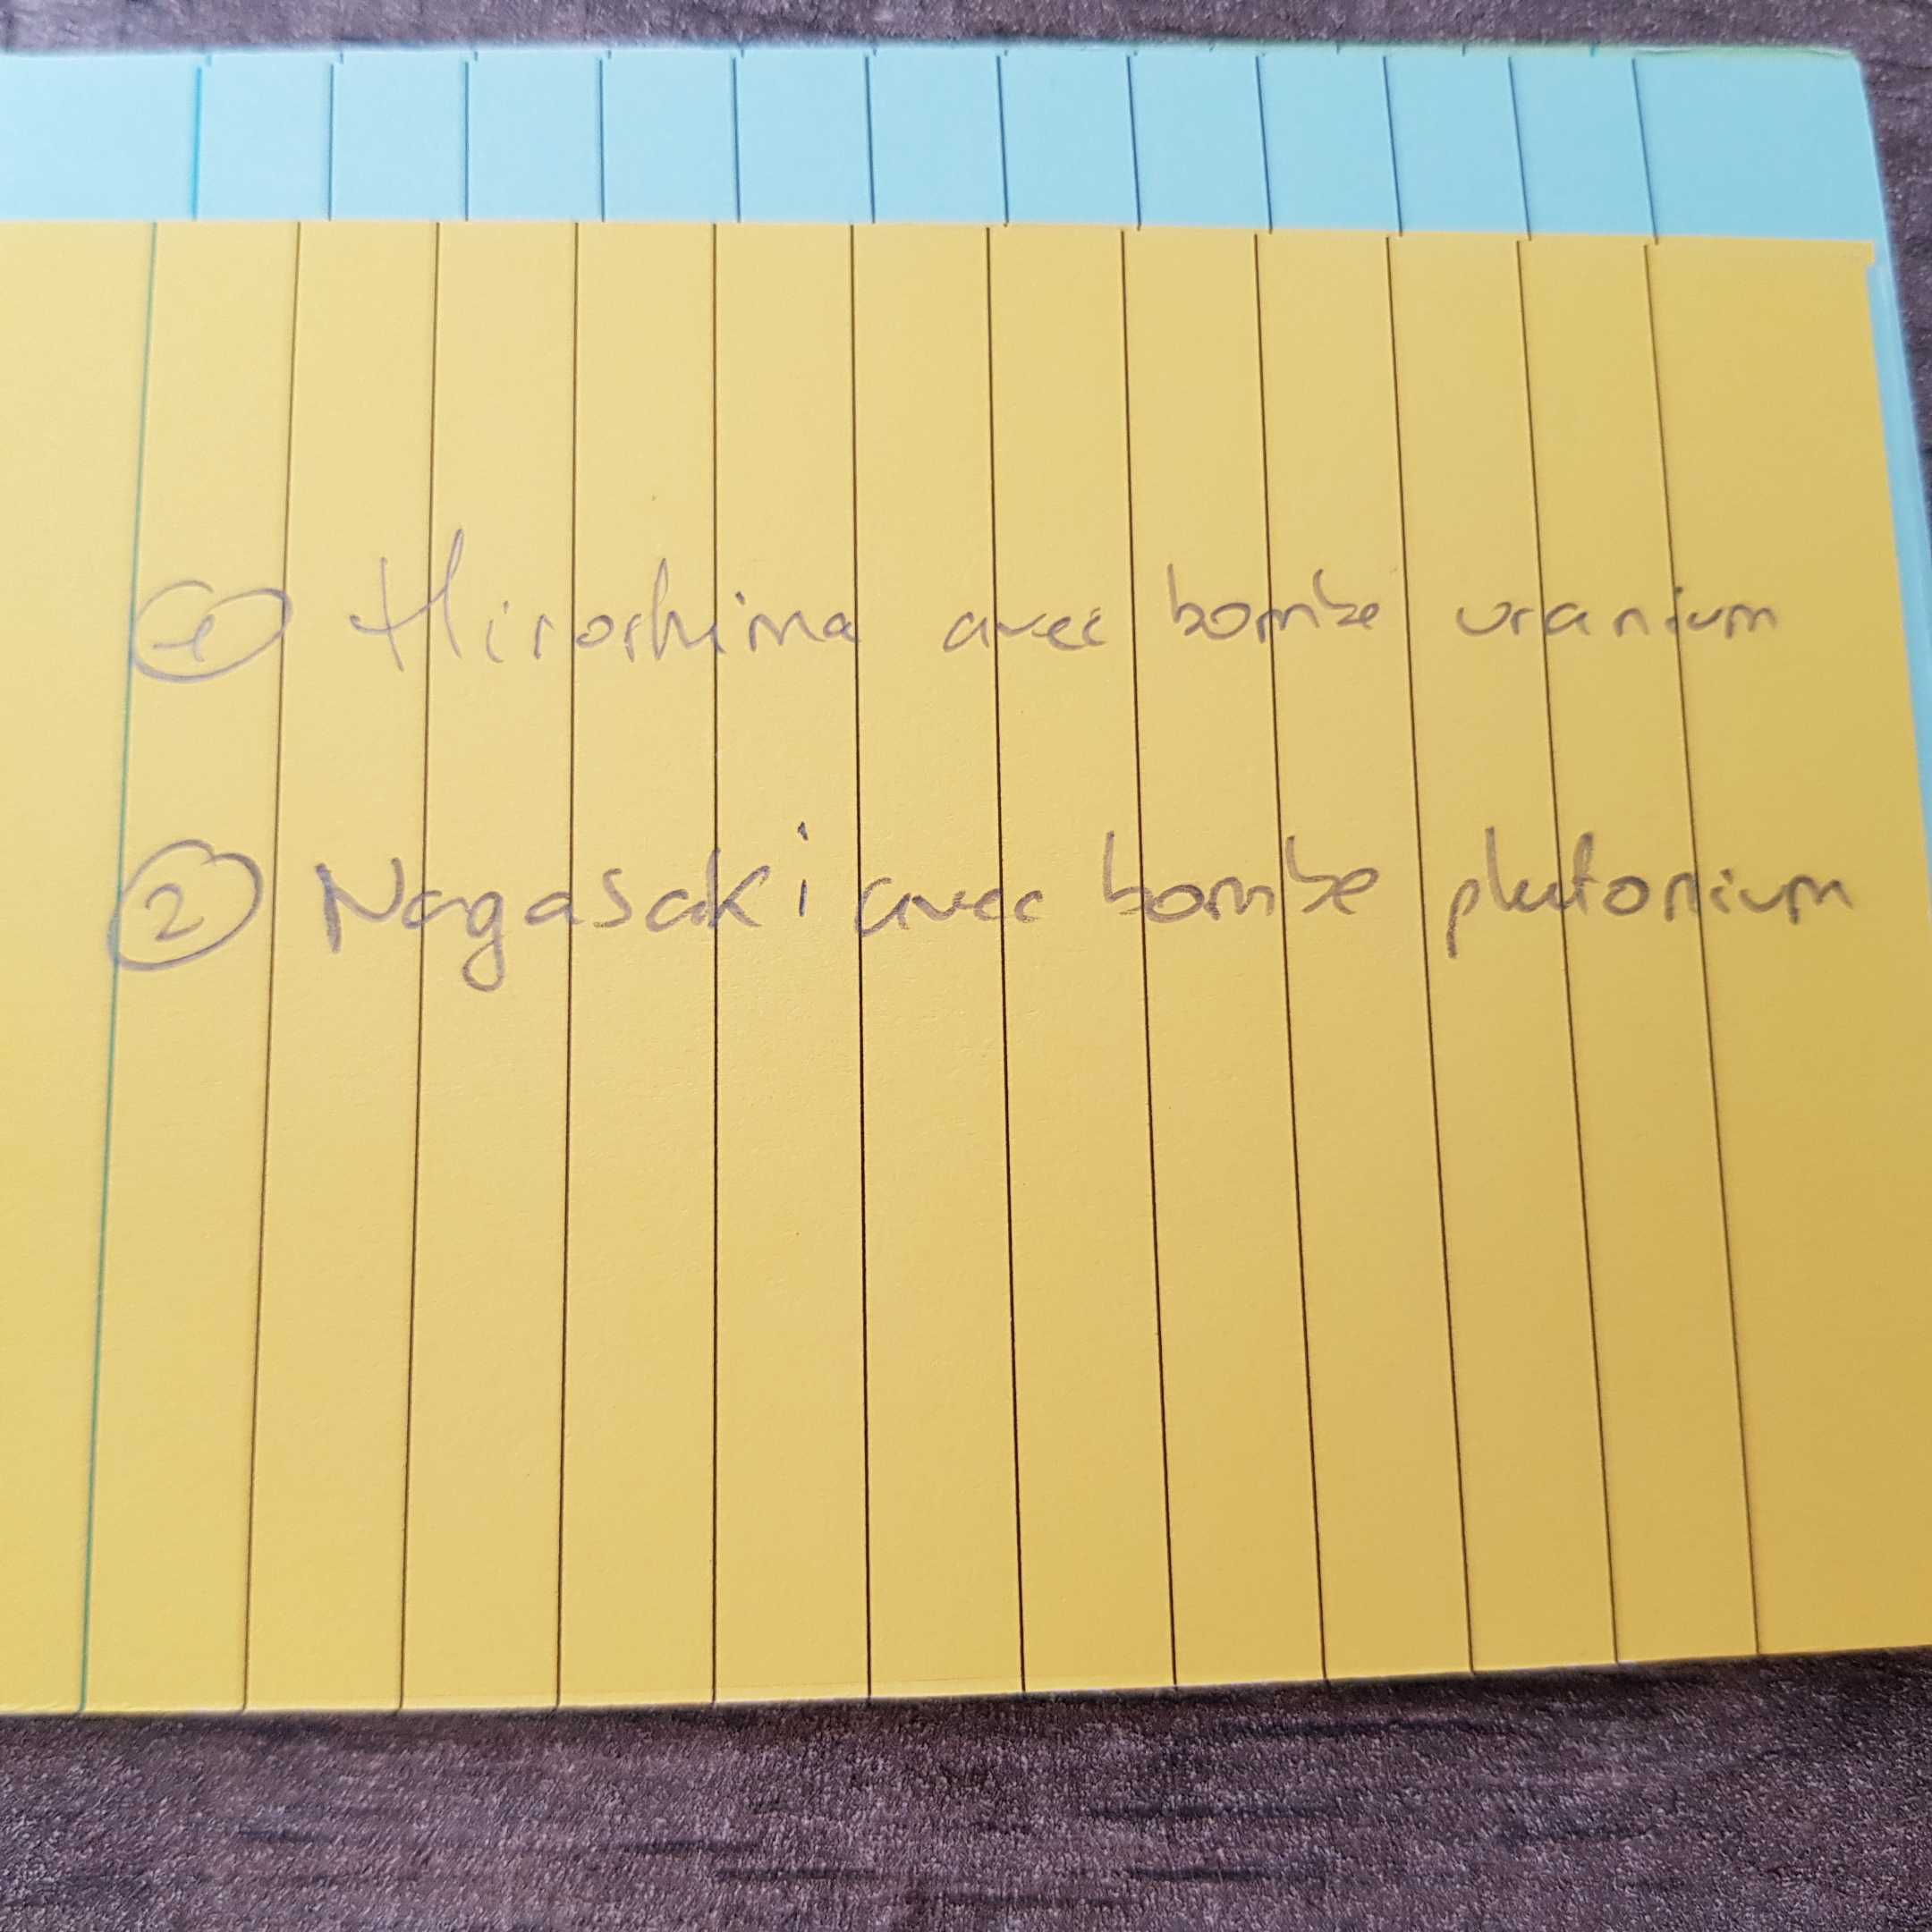 ① Hiroshima avec bombe uranium
② Nagasaki avec bombe plutonium